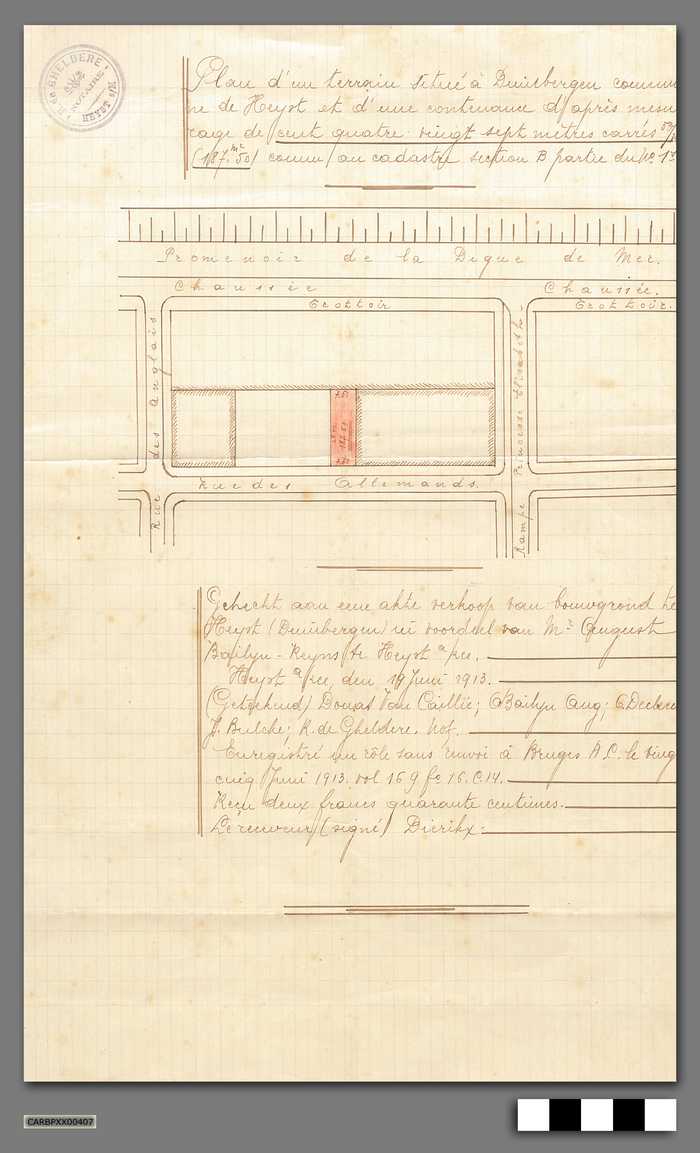 R. de GHELDERE
NOTAIRE
HEYST s/M
Plan d'un terrain situé à Duinbergen commu
ne de Heyst et d'une contenance d'après mesu
rage de cent quatre-vingt sept mètres carrés 50/
(187.m² 50) connu au cadastre section B partie du No. 1
Promenoir de la Digue de Mer.
Chaussée Chaussée.
Trottoir Trottoir.
Rue des Anglais
Rampe Princesse Elisabeth.
7.50
187.50
7.50
Rue des Allemands.
Gehecht aan eene akte verkoop van bouwgrond te
Heyst (Duinbergen) in voordeel van Mr August
Bailyu-Reyns te Heyst a/zee.
Heyst a/zee, den 19 Juni 1913.
(Geteekend) Douas Van Caillie; A Bailyu Aug; C. Declerc
J. Bulcke; R. de Gheldere, Not.
Enregistré un rôle sans renvoi à Bruges A.C. le ving
cinq Juni 1913. vol 169 fo 16. C.14.
Reçu deux francs quarante centimes.
Le receveur (signé) Dierikx.
CARBPXX00407